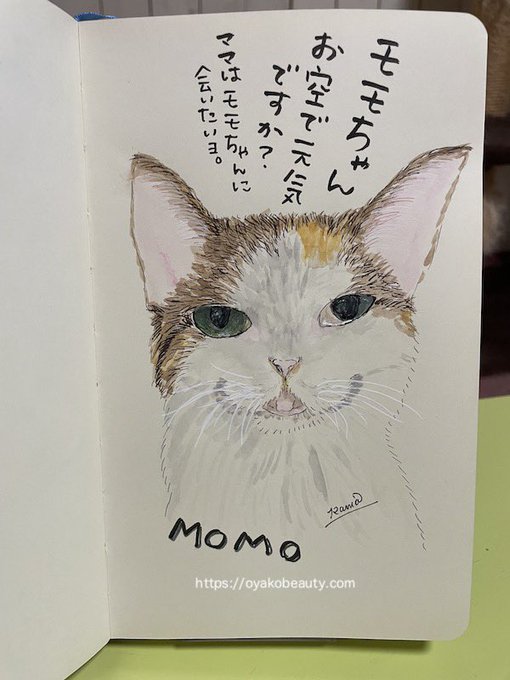 モモちゃん
お空で元気
ですか?
ママはモモちゃんに
会いたいヨ。
Kana
MOMO
https://oyakobeauty.com